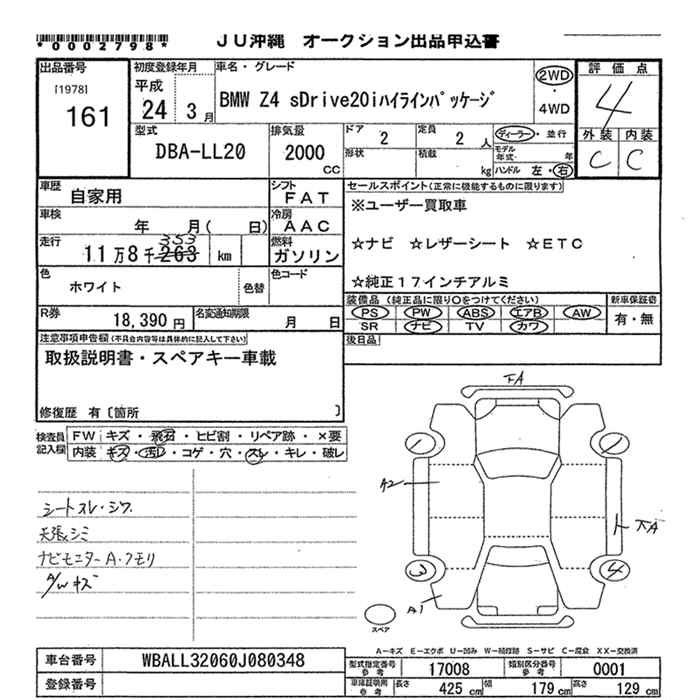 *0002798*
JU沖縄 オークション出品申込書
出品番号
[1978]
161
初度登録年月
平成
24 3月
車名・グレード
BMW Z4 sDrive20iハイラインパッケージ
2WD
・
4WD
評価点
4
外装 内装
C C
型式
DBA-LL20
排気量
2000
CC
ドア
2
定員
2 人
形状
積載
kg
ディーラー・並行
モデル年式・ 年
ハンドル 左・右
車歴
自家用
シフト
FAT
車検
年 月( 日)
冷房
AAC
走行
353
11万8千263 km
燃料
ガソリン
色
ホワイト
色替
色コード
R券
18,390円
名変通知期限
月 日
セールスポイント(正常に機能するものに限ります)
※ユーザー買取車
☆ナビ ☆レザーシート ☆ETC
☆純正17インチアルミ
装備品 (純正品に限り〇をつけてください)
PS PW ABS エアB AW
SR ナビ TV カワ
新車保証書
有・無
後日品
注意事項申告欄(不具合内容等は具体的に記入して下さい)
取扱説明書・スペアキー車載
修復歴 有〔箇所 〕
検査員
記入欄
FW キズ・飛石・ヒビ割・リペア跡・×要
内装 キズ・汚レ・コゲ・穴・スレ・キレ・破レ
シートスレ・シワ
天張シミ
ナビモニターA・クモリ
A/Wキズ
下A
A2
ト下A
A1
スペア
A-キズ E-エクボ U-凹み W-補修跡 S-サビ C-腐食 XX-交換済
車台番号
WBALL32060J080348
登録番号
型式指定番号
参考
17008
類別区分番号
参考
0001
車庫証明用
参考
長さ
425 cm
幅
179 cm
高さ
129 cm